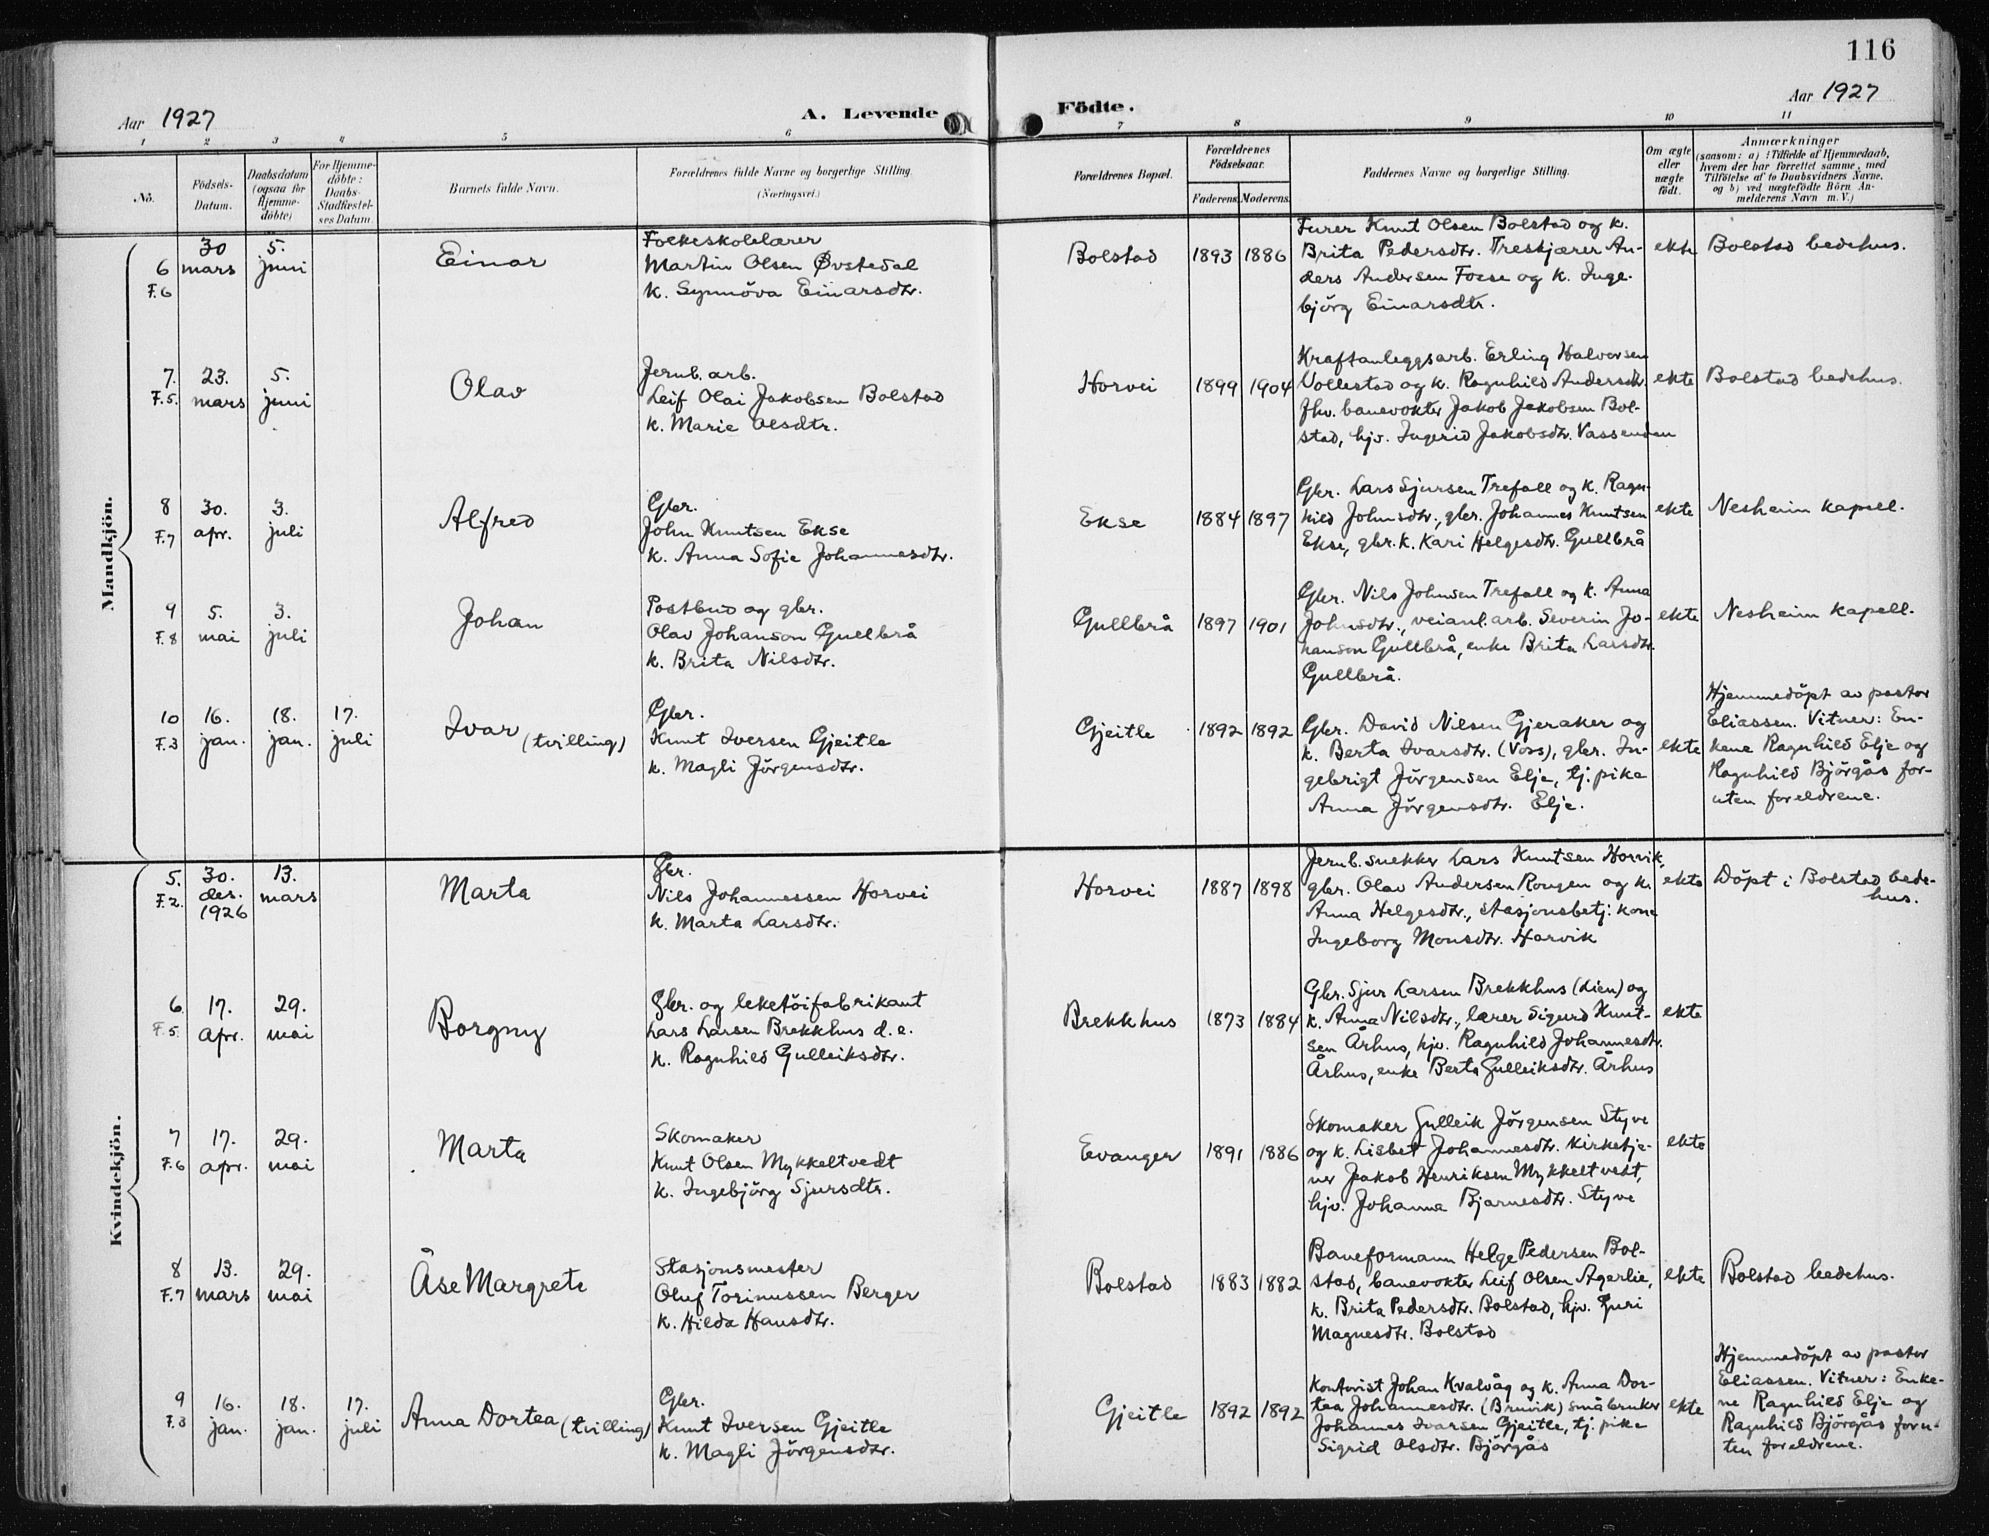 116
Aar 1927
A. Levende Födte.
Aar 1927
1 2 3 4 5 6 7 8 9 10 11
No.
Födsels-
Datum.
Daabsdatum
(ogsaa for
Hjemme-
döbte)
For Hjemme-
döbte:
Daabs-
Stadfæstel-
ses Datum.
Barnets fulde Navn.
Forældrenes fulde Navne og borgerlige Stilling.
(Næringsvei.)
Forældrenes Bopæl.
Forældrenes
Födselsaar.
Faderens. Moderens.
Faddernes Navne og borgerlige Stilling.
Om ægte
eller
uægte
födt.
Anmærkninger
(saasom: a) i Tilfælde af Hjemmedaab,
hvem der har forrettet samme, med
Tilföielse af to Daabsvidners Navne,
og b) ved uægtefödte Börn An-
melderens Navn m. V.)
Mandkjön.
6
F.6
30
mars
5.
juni
Einar
Folkeskolelærer
Martin Olsen Øvstedal
k. Synnöva Einarsdtr.
Bolstad
1893
1886
Furer Knut Olsen Bolstad og k.
Brita Pedersdtr. Treskjærer An-
ders Andersen Fosse og k. Inge-
björg Einarsdtr.
ekte
Bolstad bedehus.
7.
F.5.
23.
mars
5.
juni
Olav
Jernb. arb.
Leif Olai Jakobsen Bolstad
k. Marie Olsdtr.
Horvei
1899
1904
Kraftanleggsarb. Erling Halvorsen
Vollestad og k. Ragnhild Andersdtr.
fhv. banevokter Jakob Jakobsen Bol-
stad, hjv. Ingerid Jakobsdtr. Vassenden
ekte
Bolstad bedehus.
8
F.7
30.
apr.
3.
juli
Alfred
Gbr.
John Knutsen Ekse
k. Anna Sofie Johannesdtr.
Ekse
1884
1897
Gbr. Lars Sjursen Trefall og k. Ragn-
hild Johnsdtr., gbr. Johannes Knutsen
Ekse, gbr. k. Kari Helgesdtr. Gullbrå
ekte
Nesheim kapell.
9
F.8
5.
mai
3.
juli
Johan
Postbud og gbr.
Olav Johanson Gullbrå
k. Brita Nilsdtr.
Gullbrå
1897
1901
Gbr. Nils Johnsen Trefall og k. Anna
Johnsdtr., veianl. arb. Severin Jo-
hanson Gullbrå, enke Brita Larsdtr.
Gullbrå.
ekte
Nesheim kapell.
10
F.3
16.
jan.
18.
jan.
17.
juli
Ivar (tvilling)
Gbr.
Knut Iversen Gjeitle
k. Magli Jörgensdtr.
Gjeitle
1892
1892
Gbr. David Nilsen Gjeraker og
k. Berta Ivarsdtr. (Voss), gbr. In-
gebrigt Jörgensen Elje, tj. pike
Anna Jörgensdtr. Elje.
ekte
Hjemmedöpt av pastor
Eliassen. Vitner: En-
kene Ragnhild Elje og
Ragnhild Björgås for-
uten foreldrene.
Kvindekjön.
5.
F.2.
30.
des.
1926
13.
mars
Marta
Gbr.
Nils Johannessen Horvei
k. Marta Larsdtr.
Horvei
1887
1898
Jernb. snekker Lars Knutsen Horvik,
gbr. Olav Andersen Rongen og k.
Anna Helgesdtr., stasjonsbetj. kone
Ingeborg Monsdtr. Horvik
ekte
Döpt i Bolstad bede-
hus.
6
F.5.
17.
apr.
29.
mai
Borgny
Gbr. og leketöifabrikant
Lars Larsen Brekkhus d. e.
k. Ragnhild Gulleiksdtr.
Brekkhus
1873
1884
Gbr. Sjur Larsen Brekkhus (Lien) og
k. Anna Nilsdtr., lærer Sigurd Knut-
sen Århus, hjv. Ragnhild Johannesdtr.
Århus, enke Berta Gulleiksdtr. Århus
ekte
7
F.6
17.
apr.
29.
mai
Marta
Skomaker
Knut Olsen Mykkeltvedt
k. Ingebjörg Sjursdtr.
Evanger
1891
1886
Skomaker Gulleik Jörgensen Styve
og k. Lisbet Johannesdtr. kirketje-
ner Jakob Henriksen Mykkeltvedt,
hjv. Johanna Bjarnesdtr. Styve
ekte
8
F.7
13.
mars
29.
mai
Åse Margrete
Stasjonsmester
Oluf Torinussen Berger
k. Hilda Hansdtr.
Bolstad
1883
1882
Baneformann Helge Pedersen Bol-
stad, banevokter Leif Olsen Agerlie,
k. Brita Pedersdtr. Bolstad, hjv. Guri
Magnesdtr. Bolstad
ekte
Bolstad bedehus.
9
F.3
16.
jan.
18.
jan.
17.
juli
Anna Dortea (tvilling)
Gbr.
Knut Iversen Gjeitle
k. Magli Jörgensdtr.
Gjeitle
1892
1892
Kontorist Johan Kvalvåg og k. Anna Dor-
tea Johannesdtr. (Bruvik) småbruker
Johannes Ivarsen Gjeitle, tj. pike
Sigrid Olsdtr. Björgås
ekte
Hjemmedöpt av pastor
Eliassen. Vitner: Enke-
ne Ragnhild Elje og
Ragnhild Björgås foru-
ten foreldrene.